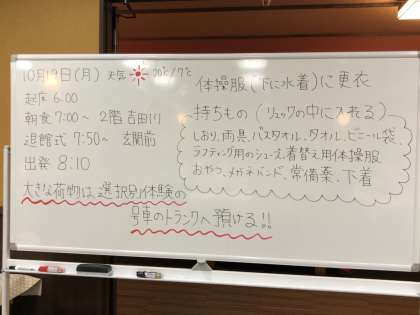 10月19日(月) 天気 20℃/7℃
起床 6:00
朝食 7:00~ 2階 吉田川
退館式 7:50~ 玄関前
出発 8:10
大きな荷物は、選択別体験の
号車のトランクへ預ける!!
体操服(下に水着)に更衣
持ちもの(リュックの中に入れる)
しおり、雨具、バスタオル、タオル、ビニール袋、
ラフティング用のシューズ、着替え用体操服
おやつ、メガネバンド、常備薬、下着